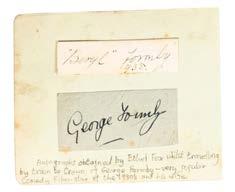 "Beryl" Formby
1938.
George Formby
Autographs obtained by Elliot Fox whilst travelling
by train to Crewe of George Formby - very popular
Comedy Film Star of the 1930s and his wife